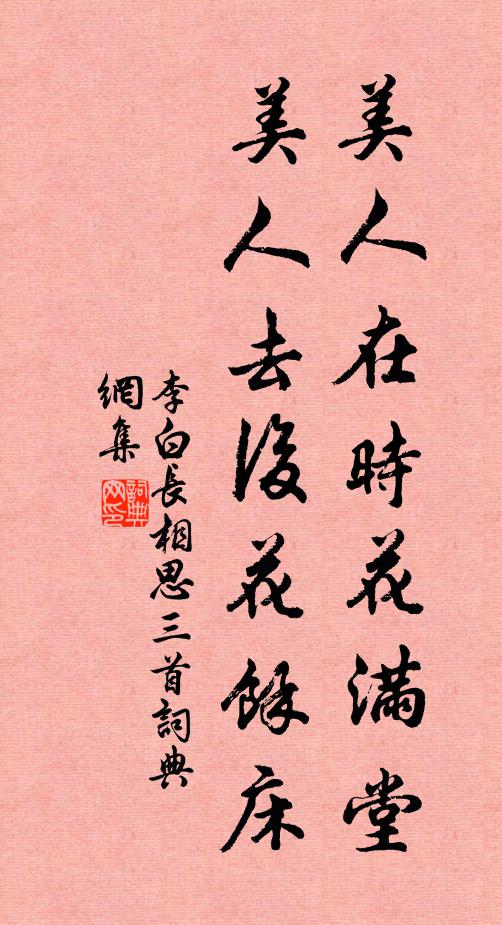 美人在時花滿堂
美人去後花餘床
李白長相思三首詞典
網集
詞典
网印